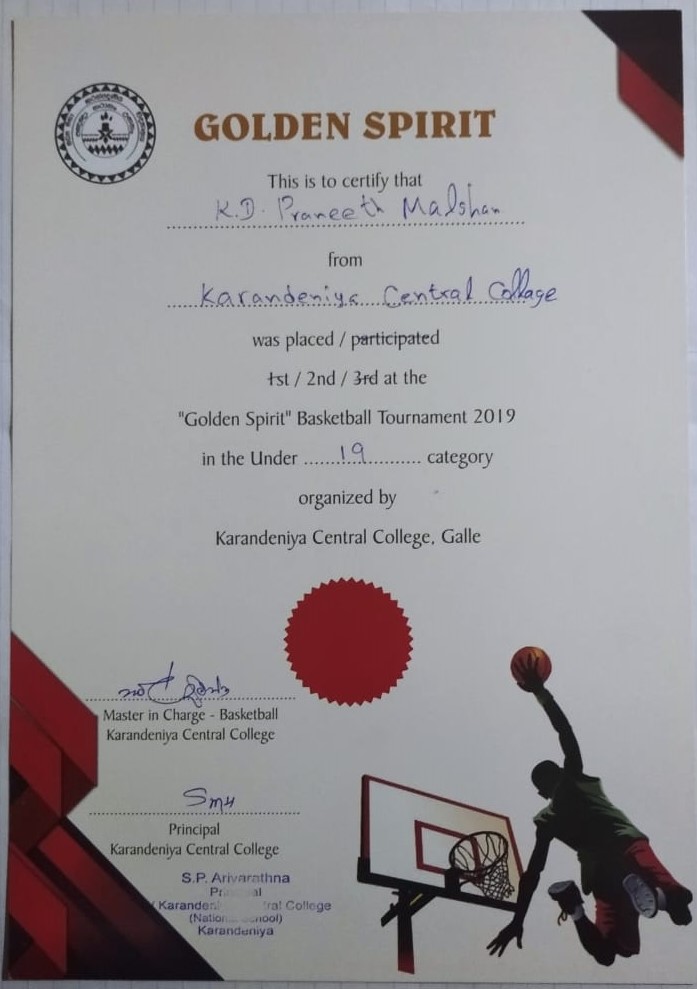 GOLDEN SPIRIT
This is to certify that
K.D. Praneeth Malshan
from
Karandeniya Central Collage
was placed / participated
1st / 2nd / 3rd at the
"Golden Spirit" Basketball Tournament 2019
in the Under ......19............ category
organized by
Karandeniya Central College, Galle
Master in Charge - Basketball
Karandeniya Central College
Principal
Karandeniya Central College
S.P. Arivarathna
Central College
Karandeniya